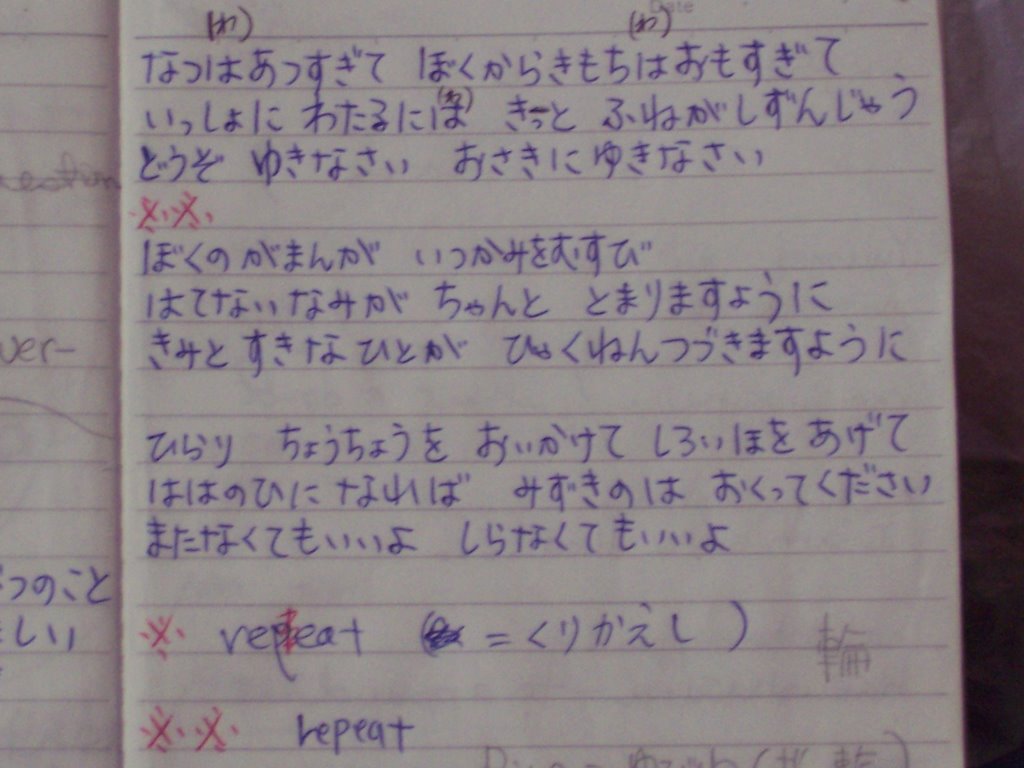 (わ) (わ)
なつはあつすぎて ぼくからきもちはおもすぎて
(わ)
いっしょに わたるには きっと ふねがしずんじゃう
どうぞ ゆきなさい おさきにゆきなさい
※※
ぼくのがまんが いつかみをむすび
はてないなみが ちゃんと とまりますように
きみとすきなひとが ひゃくねんつづきますように
ひらり ちょうちょうを おいかけて しろいほをあげて
ははのひになれば みずきのは おくってください
またなくてもいいよ しらなくてもいいよ
つのこと
しい
ver-
※ repeat ( = くりかえし )
輪
※※ repeat